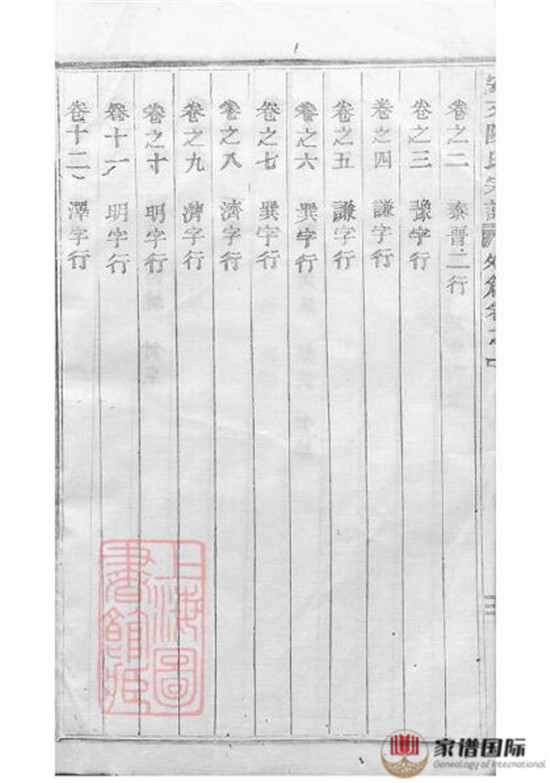 卷之二 泰晉二行
卷之三 豫字行
卷之四 謙字行
卷之五 謙字行
卷之六 巽字行
卷之七 巽字行
卷之八 濟字行
卷之九 濟字行
卷之十 明字行
卷十一 明字行
卷十二 澤字行
上海圖書館
家谱国际
Genealogy of International